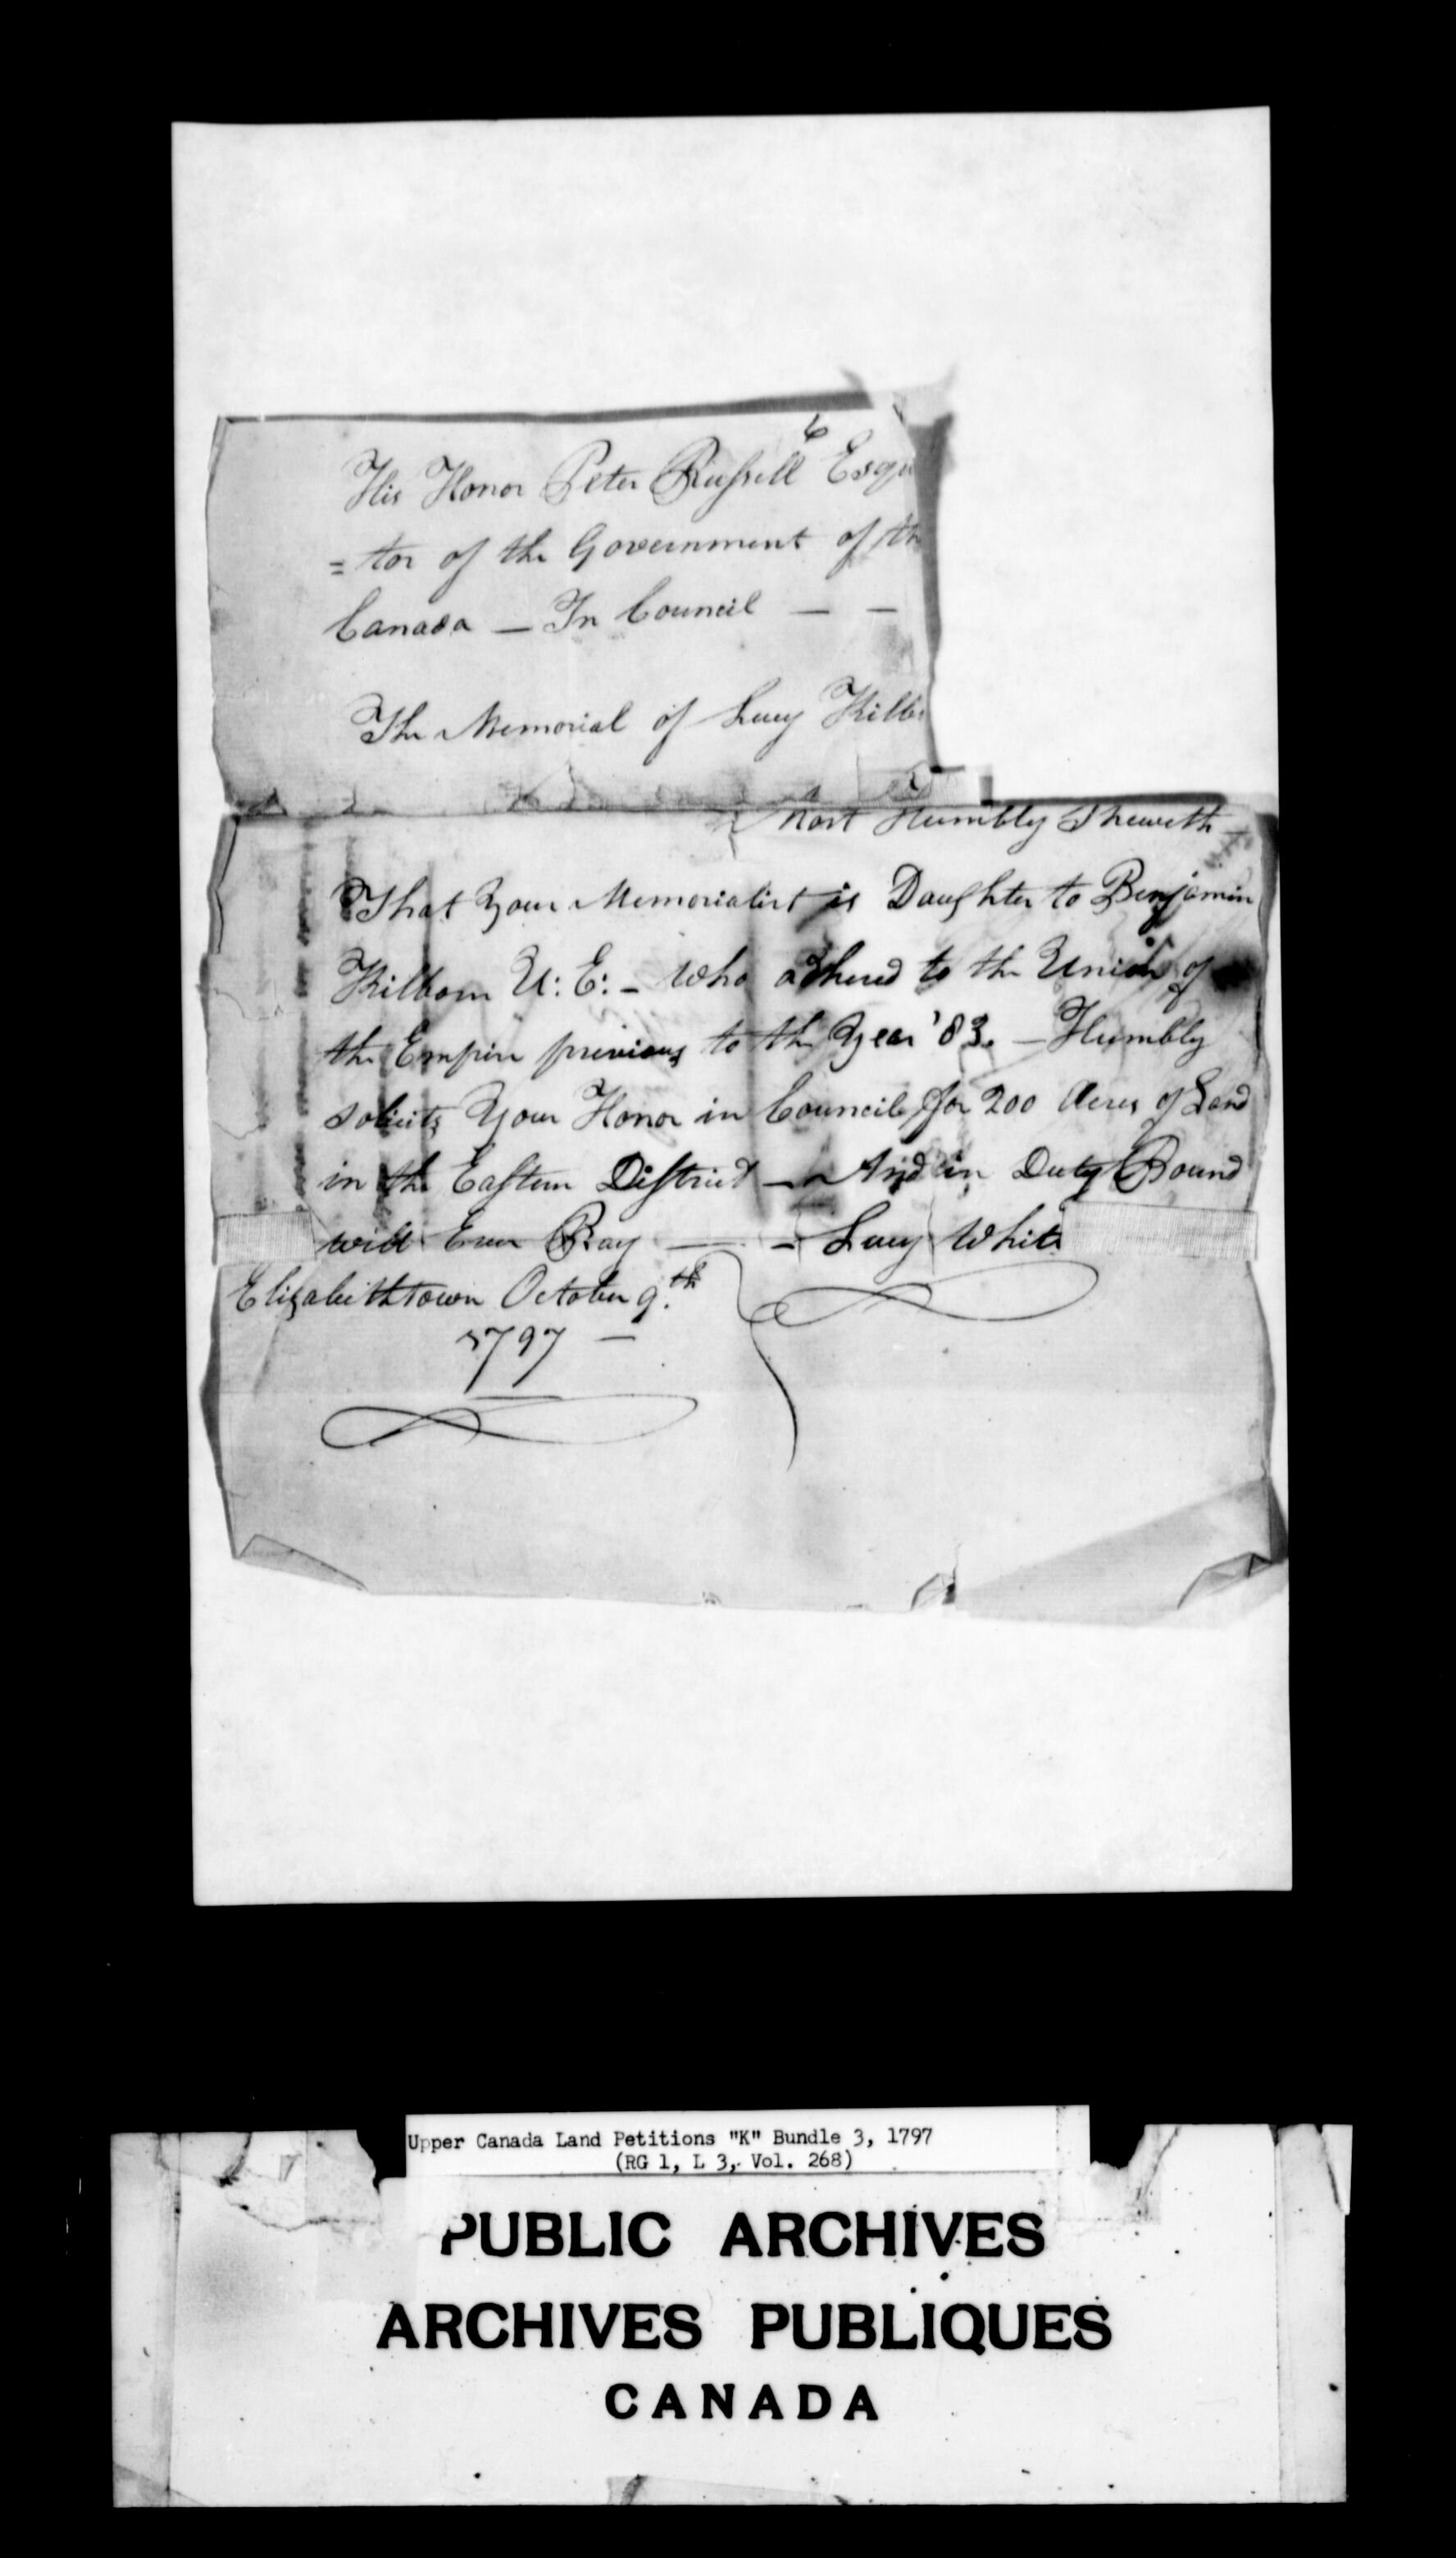 6
His Honor Peter Russell Esqu
= tor of the Government of th
Canada — In Council — —
The Memorial of Lucy Kilbo
Most Humbly Sheweth —
That Your Memorialist is Daughter to Benjamin
Kilborn U: E: - Who adhered to the Union of
the Empire previous to the Year '83. — Humbly
solicits Your Honor in Council for 200 Acres of Land
in the Eastern District — And in Duty Bound
will Ever Pray — - Lucy White
Elizabethtown October 9.th
1797 —
Upper Canada Land Petitions "K" Bundle 3, 1797
(RG 1, L 3, Vol. 268)
PUBLIC ARCHIVES
ARCHIVES PUBLIQUES
CANADA